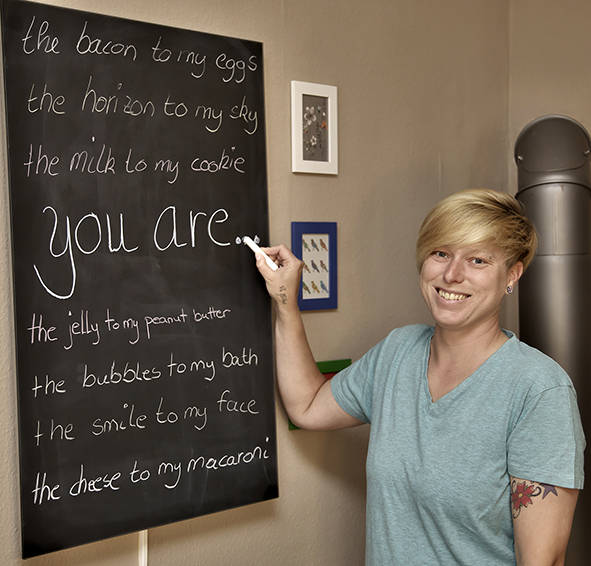 the bacon to my eggs
the horizon to my sky
the milk to my cookie
you are...
the jelly to my peanut butter
the bubbles to my bath
the smile to my face
the cheese to my macaroni